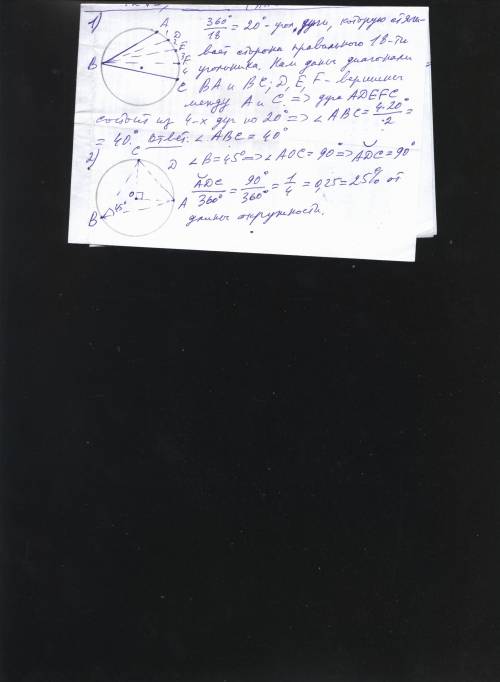 1) A 360°/18 = 20° - угол дуги, которую стяги-
вает сторона правильного 18-ти
угольника. Нам даны диагонали
BA и BC; D, E, F - вершины
между A и C. => дуга ADEFC
состоит из 4-х дуг по 20° => ∠ABC = 4·20°/2 =
= 40°. Ответ. ∠ABC = 40°
A
1
D
2
E
3
F
4
B
C
2) C D ∠B = 45° => ∠AOC = 90° => ADC = 90°
ADC/360° = 90°/360° = 1/4 = 0,25 = 25% от
длины окружности.
O
B 45°
A